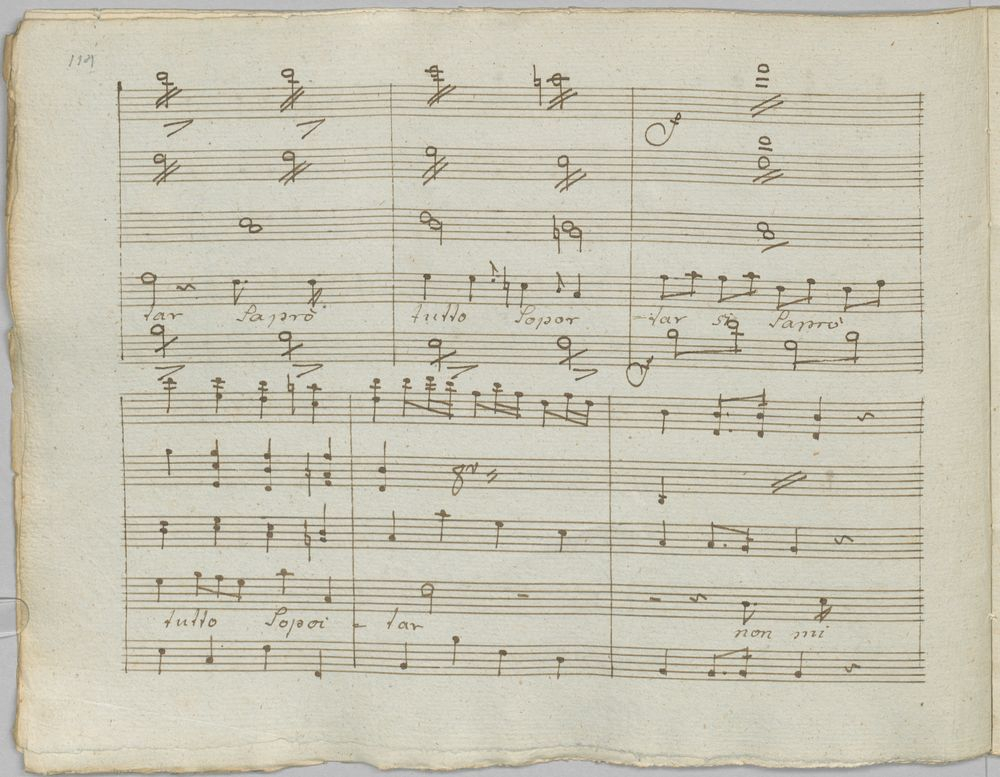 tar Saprò tutto Sopor -tar si Saprò
tutto Sopoi - tar non mi